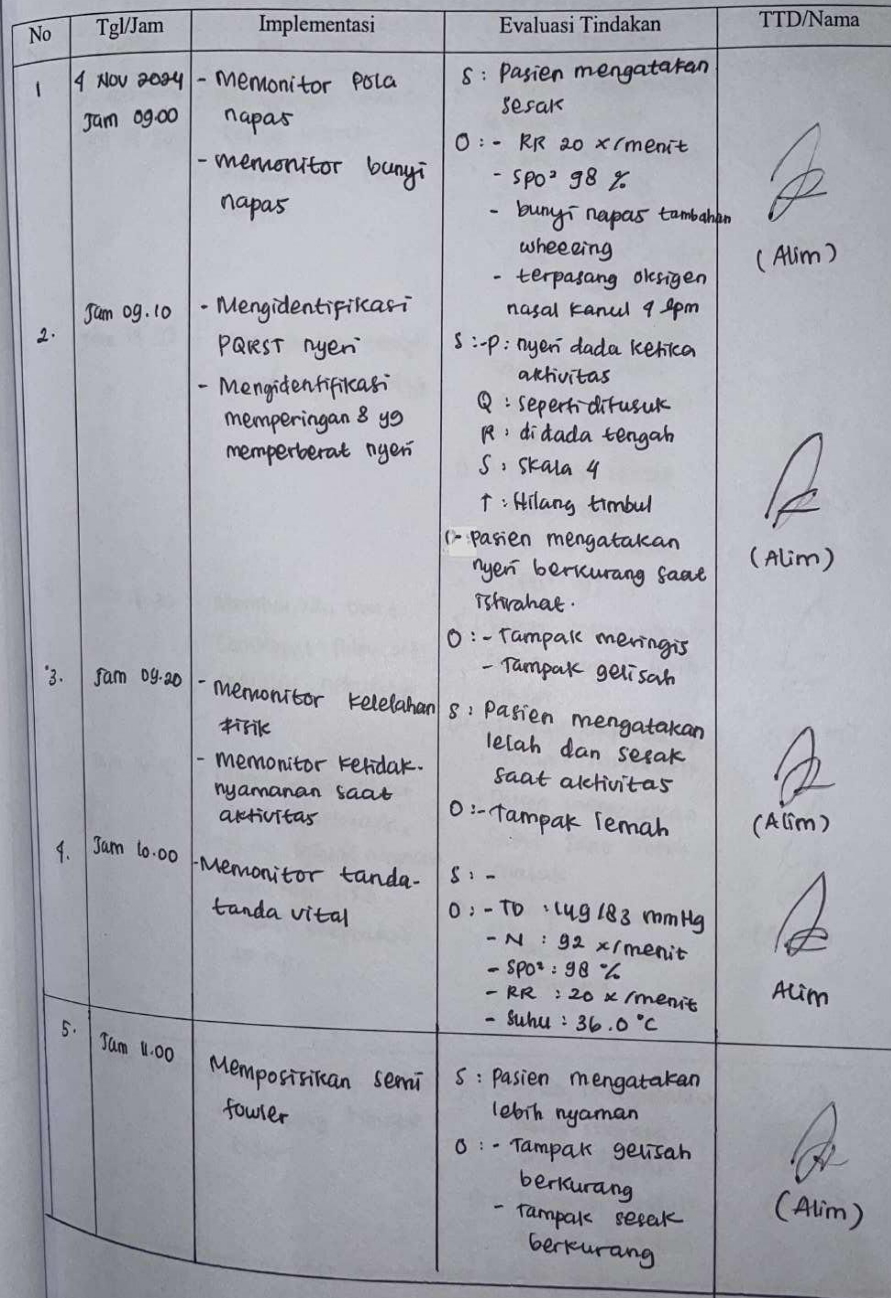 No Tgl/Jam Implementasi Evaluasi Tindakan TTD/Nama
1 4 Nov 2024 Jam 09.00
- Memonitor Pola
napas
- memonitor bunyi
napas
S : Pasien mengatakan
sesak
O : - RR 20 x/menit
- SPO² 98 %
- bunyi napas tambahan
wheeeing
- terpasang oksigen
nasal kanul 4 lpm
(Alim)
2. Jam 09.10
- Mengidentifikasi
PQRST nyeri
- Mengidentifikasi
memperingan & yg
memperberat nyeri
S : -P : nyeri dada ketika
aktivitas
Q : seperti ditusuk
R : di dada tengah
S : Skala 4
T : Hilang timbul
- Pasien mengatakan
nyeri berkurang saat
istirahat.
O : - Tampak meringis
- Tampak gelisah
(Alim)
3. Jam 09.20
- Memonitor kelelahan
fisik
- memonitor ketidak-
nyamanan saat
aktivitas
S : Pasien mengatakan
lelah dan sesak
saat aktivitas
O :- Tampak lemah
(Alim)
4. Jam 10.00
- Memonitor tanda-
tanda vital
S : -
O : - TD : 149/83 mmHg
- N : 92 x/menit
- SPO² : 98 %
- RR : 20 x/menit
- Suhu : 36.0 °C
Alim
5. Jam 11.00
Memposisikan semi
fowler
S : Pasien mengatakan
lebih nyaman
O : - Tampak gelisah
berkurang
- Tampak sesak
berkurang
(Alim)